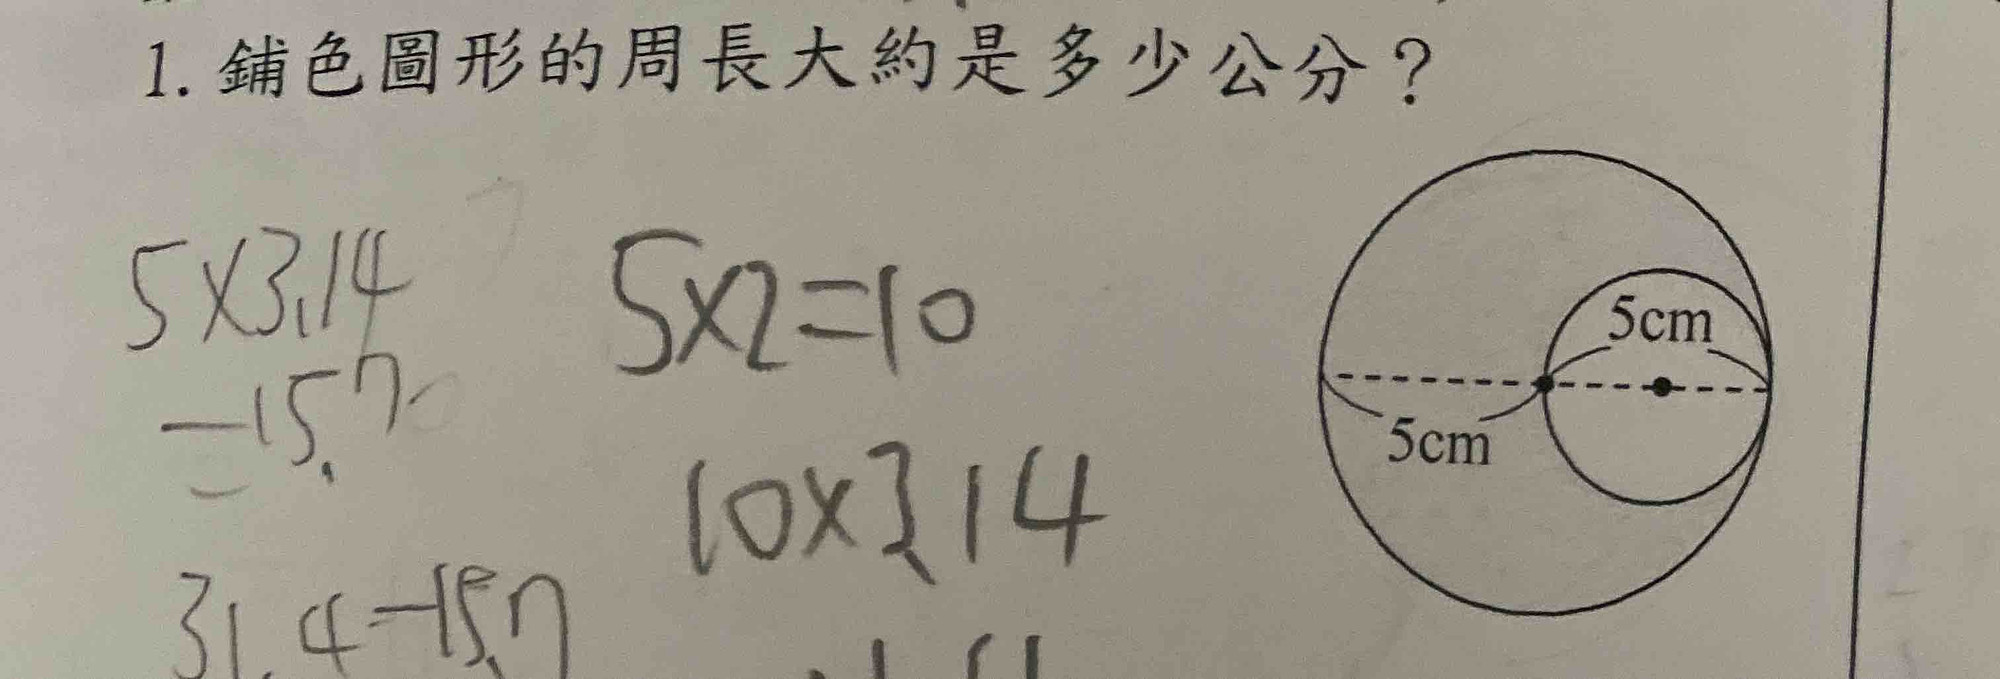 1. 鋪色圖形的周長大約是多少公分？
5×3.14
=15.70
31.4-15.7
5×2=10
10×3.14
5cm
5cm